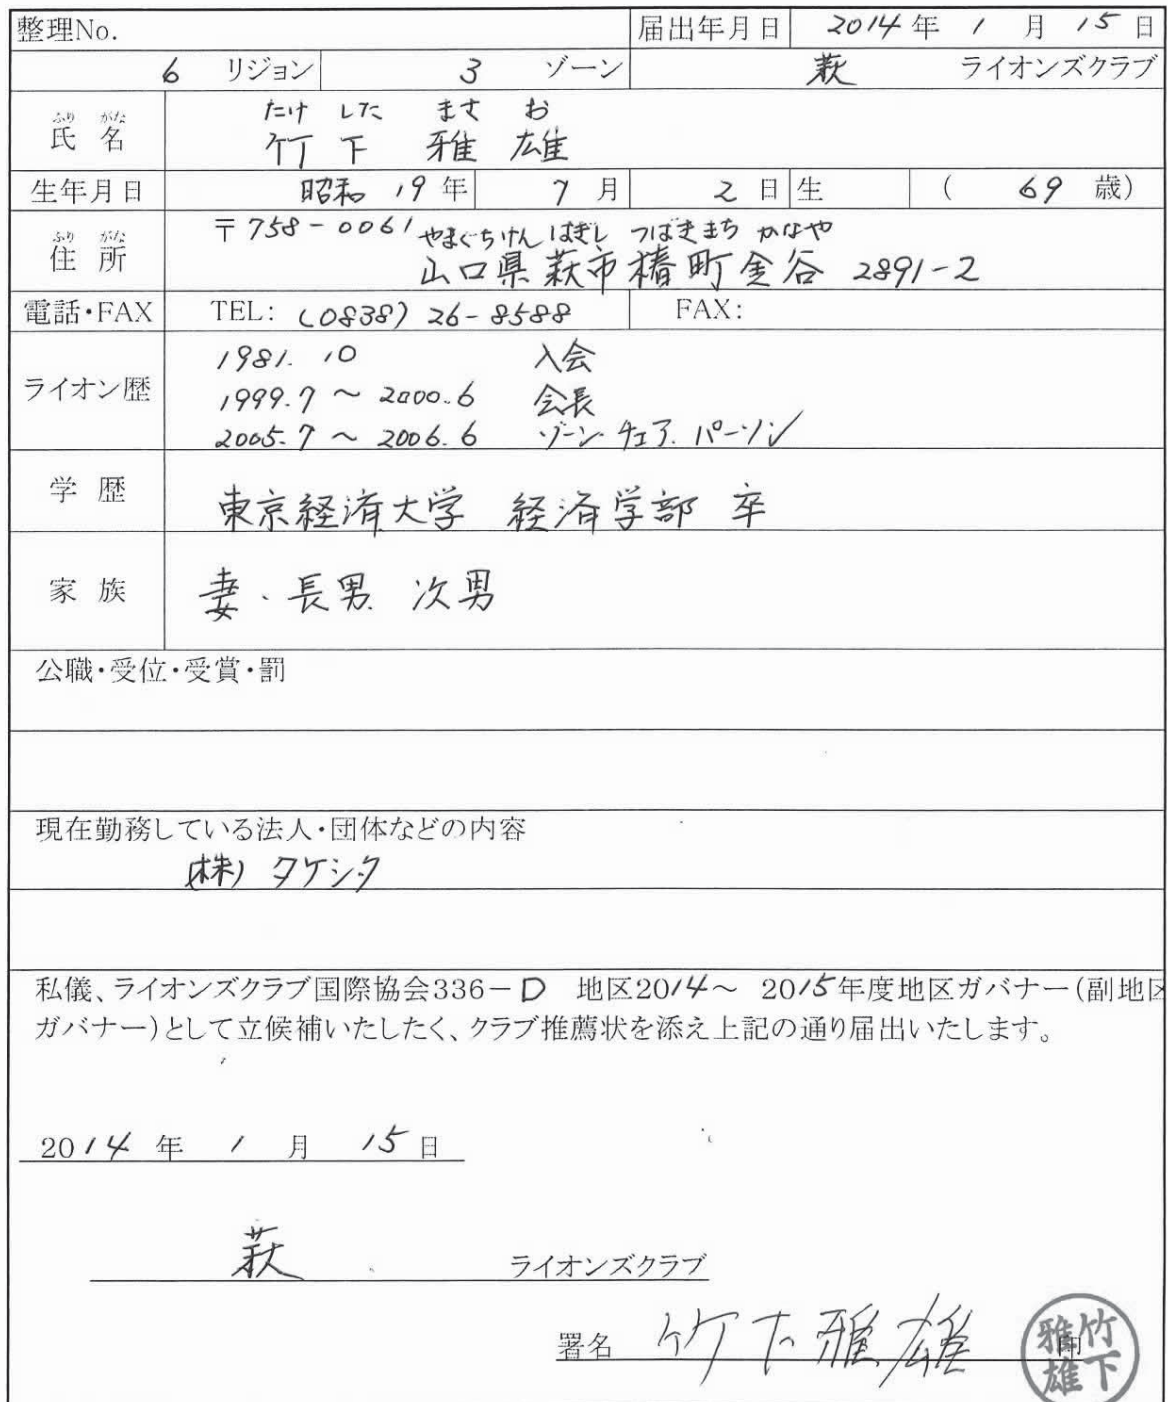 整理No. 届出年月日 2014年 1 月 15日
6 リジョン 3 ゾーン 萩 ライオンズクラブ
ふり がな たけ した まさ お
氏 名 竹下 雅雄
生年月日 昭和 19年 7月 2日生 ( 69 歳)
〒758-0061 やまぐちけん はぎし つばきまち かなや
ふり がな
住 所 山口県萩市椿町金谷 2891-2
電話・FAX TEL: (0838) 26-8588 FAX:
1981. 10 入会
ライオン歴 1999.7 ～ 2000.6 会長
2005.7 ～ 2006.6 ゾーン・チェア.パーソン
学 歴 東京経済大学 経済学部 卒
家 族 妻・長男 次男
公職・受位・受賞・罰
現在勤務している法人・団体などの内容
(株) タケシタ
私儀、ライオンズクラブ国際協会336－D 地区2014～ 2015年度地区ガバナー(副地区
ガバナー)として立候補いたしたく、クラブ推薦状を添え上記の通り届出いたします。
2014 年 1 月 15日
萩 ライオンズクラブ
署名 竹下雅雄 印
竹下
雅雄